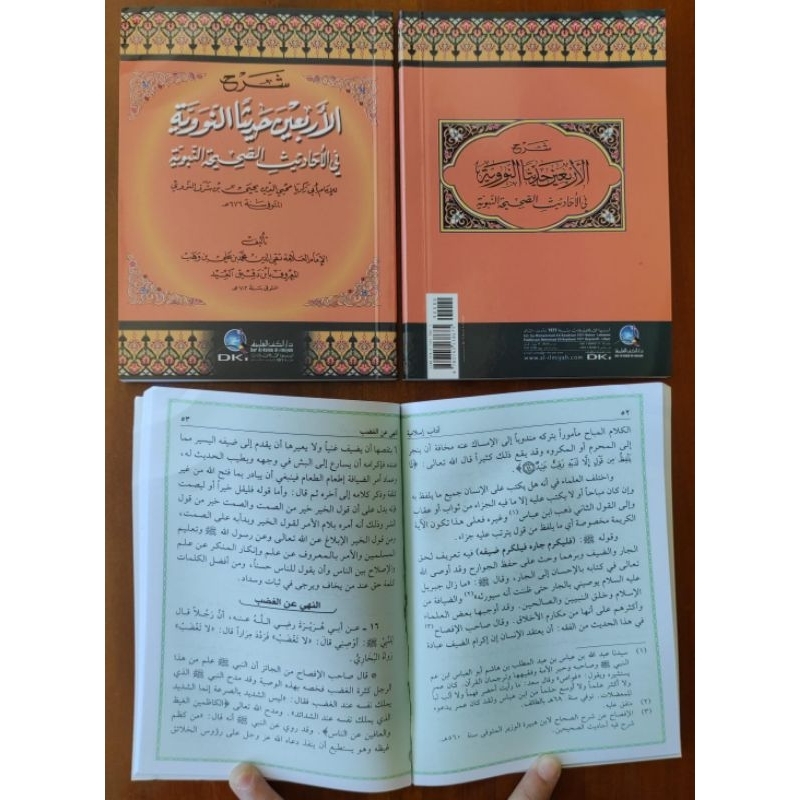 شرح
الأربعين حديثا النووية
في الأحاديث الصحيحة النبوية
للإمام أبي زكريا محيي الدين يحيى بن شرف النووي
المتوفى سنة ٦٧٦هـ
تأليف
الإمام العلامة تقي الدين محمد بن علي بن وهب
المعروف بابن دقيق العيد
المتوفى سنة ٧٠٢هـ
دار الكتب العلمية
DKi
شرح
الأربعين حديثا النووية
في الأحاديث الصحيحة النبوية
دار الكتب العلمية
DKi
www.al-ilmiyah.com
٥٢
آداب إسلامية
الكلام المباح مأموراً بتركه مندوباً إلى الإمساك عنه مخافة أن ينجر
إلى المحرم أو المكروه وقد يقع ذلك كثيراً قال الله تعالى: ﴿مَّا
يَلْفِظُ مِن قَوْلٍ إِلَّا لَدَيْهِ رَقِيبٌ عَتِيدٌ﴾
واختلف العلماء في أنه هل يكتب على الإنسان جميع ما يلفظ به
وإن كان مباحاً أو لا يكتب عليه إلا ما فيه الجزاء من ثواب أو عقاب
وإلى القول الثاني ذهب ابن عباس (١) وغيره، فعلى هذا تكون الآية
الكريمة مخصوصة أي ما يلفظ من قول يترتب عليه جزاء.
وقوله ﷺ: (فليكرم جاره فليكرم ضيفه) فيه تعريف لحق
الجار والضيف وبرهما وحث على حفظ الجوارح وقد أوصى الله
تعالى في كتابه بالإحسان إلى الجار، وقال ﷺ: «ما زال جبريل
عليه السلام يوصيني بالجار حتى ظننت أنه سيورثه» (٢) والضيافة من
الإسلام وخلق النبيين والصالحين. وقد أوجبها بعض العلماء
وأكثرهم على أنها من مكارم الأخلاق. وقال صاحب الإفصاح (٣)
في هذا الحديث من الفقه: أن يعتقد الإنسان إن إكرام الضيف عبادة
(١) سيدنا عبد الله بن عباس بن عبد المطلب بن هاشم أبو العباس ابن عم
النبي ﷺ وصاحبه وحبر الأمة وفقيهها وترجمان القرآن. كان عمر
(٢) متفق عليه.
(٣) الإفصاح عن شرح الصحاح لابن هبيرة الوزير المتوفى سنة ٥٦٠هـ
شرح فيه أحاديث الصحيحين.
النهي عن الغضب
٥٣
لا ينقصها أن يضيف غنياً ولا يغيرها أن يقدم إلى ضيفه اليسير مما
عنده فإكرامه أن يسارع إلى البش في وجهه ويطيب الحديث له،
وعماد أمر الضيافة إطعام الطعام فينبغي أن يبادر بما فتح الله من غير
كلفة وذكر كلامه إلى آخره ثم قال: وأما قوله فليقل خيراً أو ليصمت
فإنه يدل على أن قول الخير خير من الصمت والصمت خير من قول
الشر وذلك أنه أمره بلام الأمر لقول الخير وبدأه على الصمت،
ومن قول الخير الإبلاغ عن الله تعالى وعن رسول الله ﷺ وتعليم
المسلمين والأمر بالمعروف عن علم وإنكار المنكر عن علم
والإصلاح بين الناس وأن يقول للناس حسناً، ومن أفضل الكلمات
كلمة حق عند من يخاف ويرجى في ثبات وسداد.
النهي عن الغضب
١٦ - عن أبي هُرَيْرَةَ رضي اللَّه عنه، أنَّ رَجُلاً قال
لِلنَّبِيِّ ﷺ: أَوْصِني قال: «لا تَغْضَبْ» فَرَدَّدَ مِرَاراً قال: «لا تَغْضَبْ»
رَوَاهُ البُخَارِيُّ.
قال صاحب الإفصاح من الجائز أن النبي ﷺ علم من هذا
الرجل كثرة الغضب فخصه بهذه الوصية وقد مدح النبي ﷺ الذي
يملك نفسه عند الغضب فقال: «ليس الشديد بالصرعة إنما الشديد
الذي يملك نفسه عند الشدائد». ومدح الله تعالى ﴿الكاظمين الغيظ
والعافين عن الناس﴾. وقد روي عن النبي ﷺ أنه قال: «من كظم
غيظه وهو يستطيع أن ينفذ دعاه الله عز وجل على رؤوس الخلائق